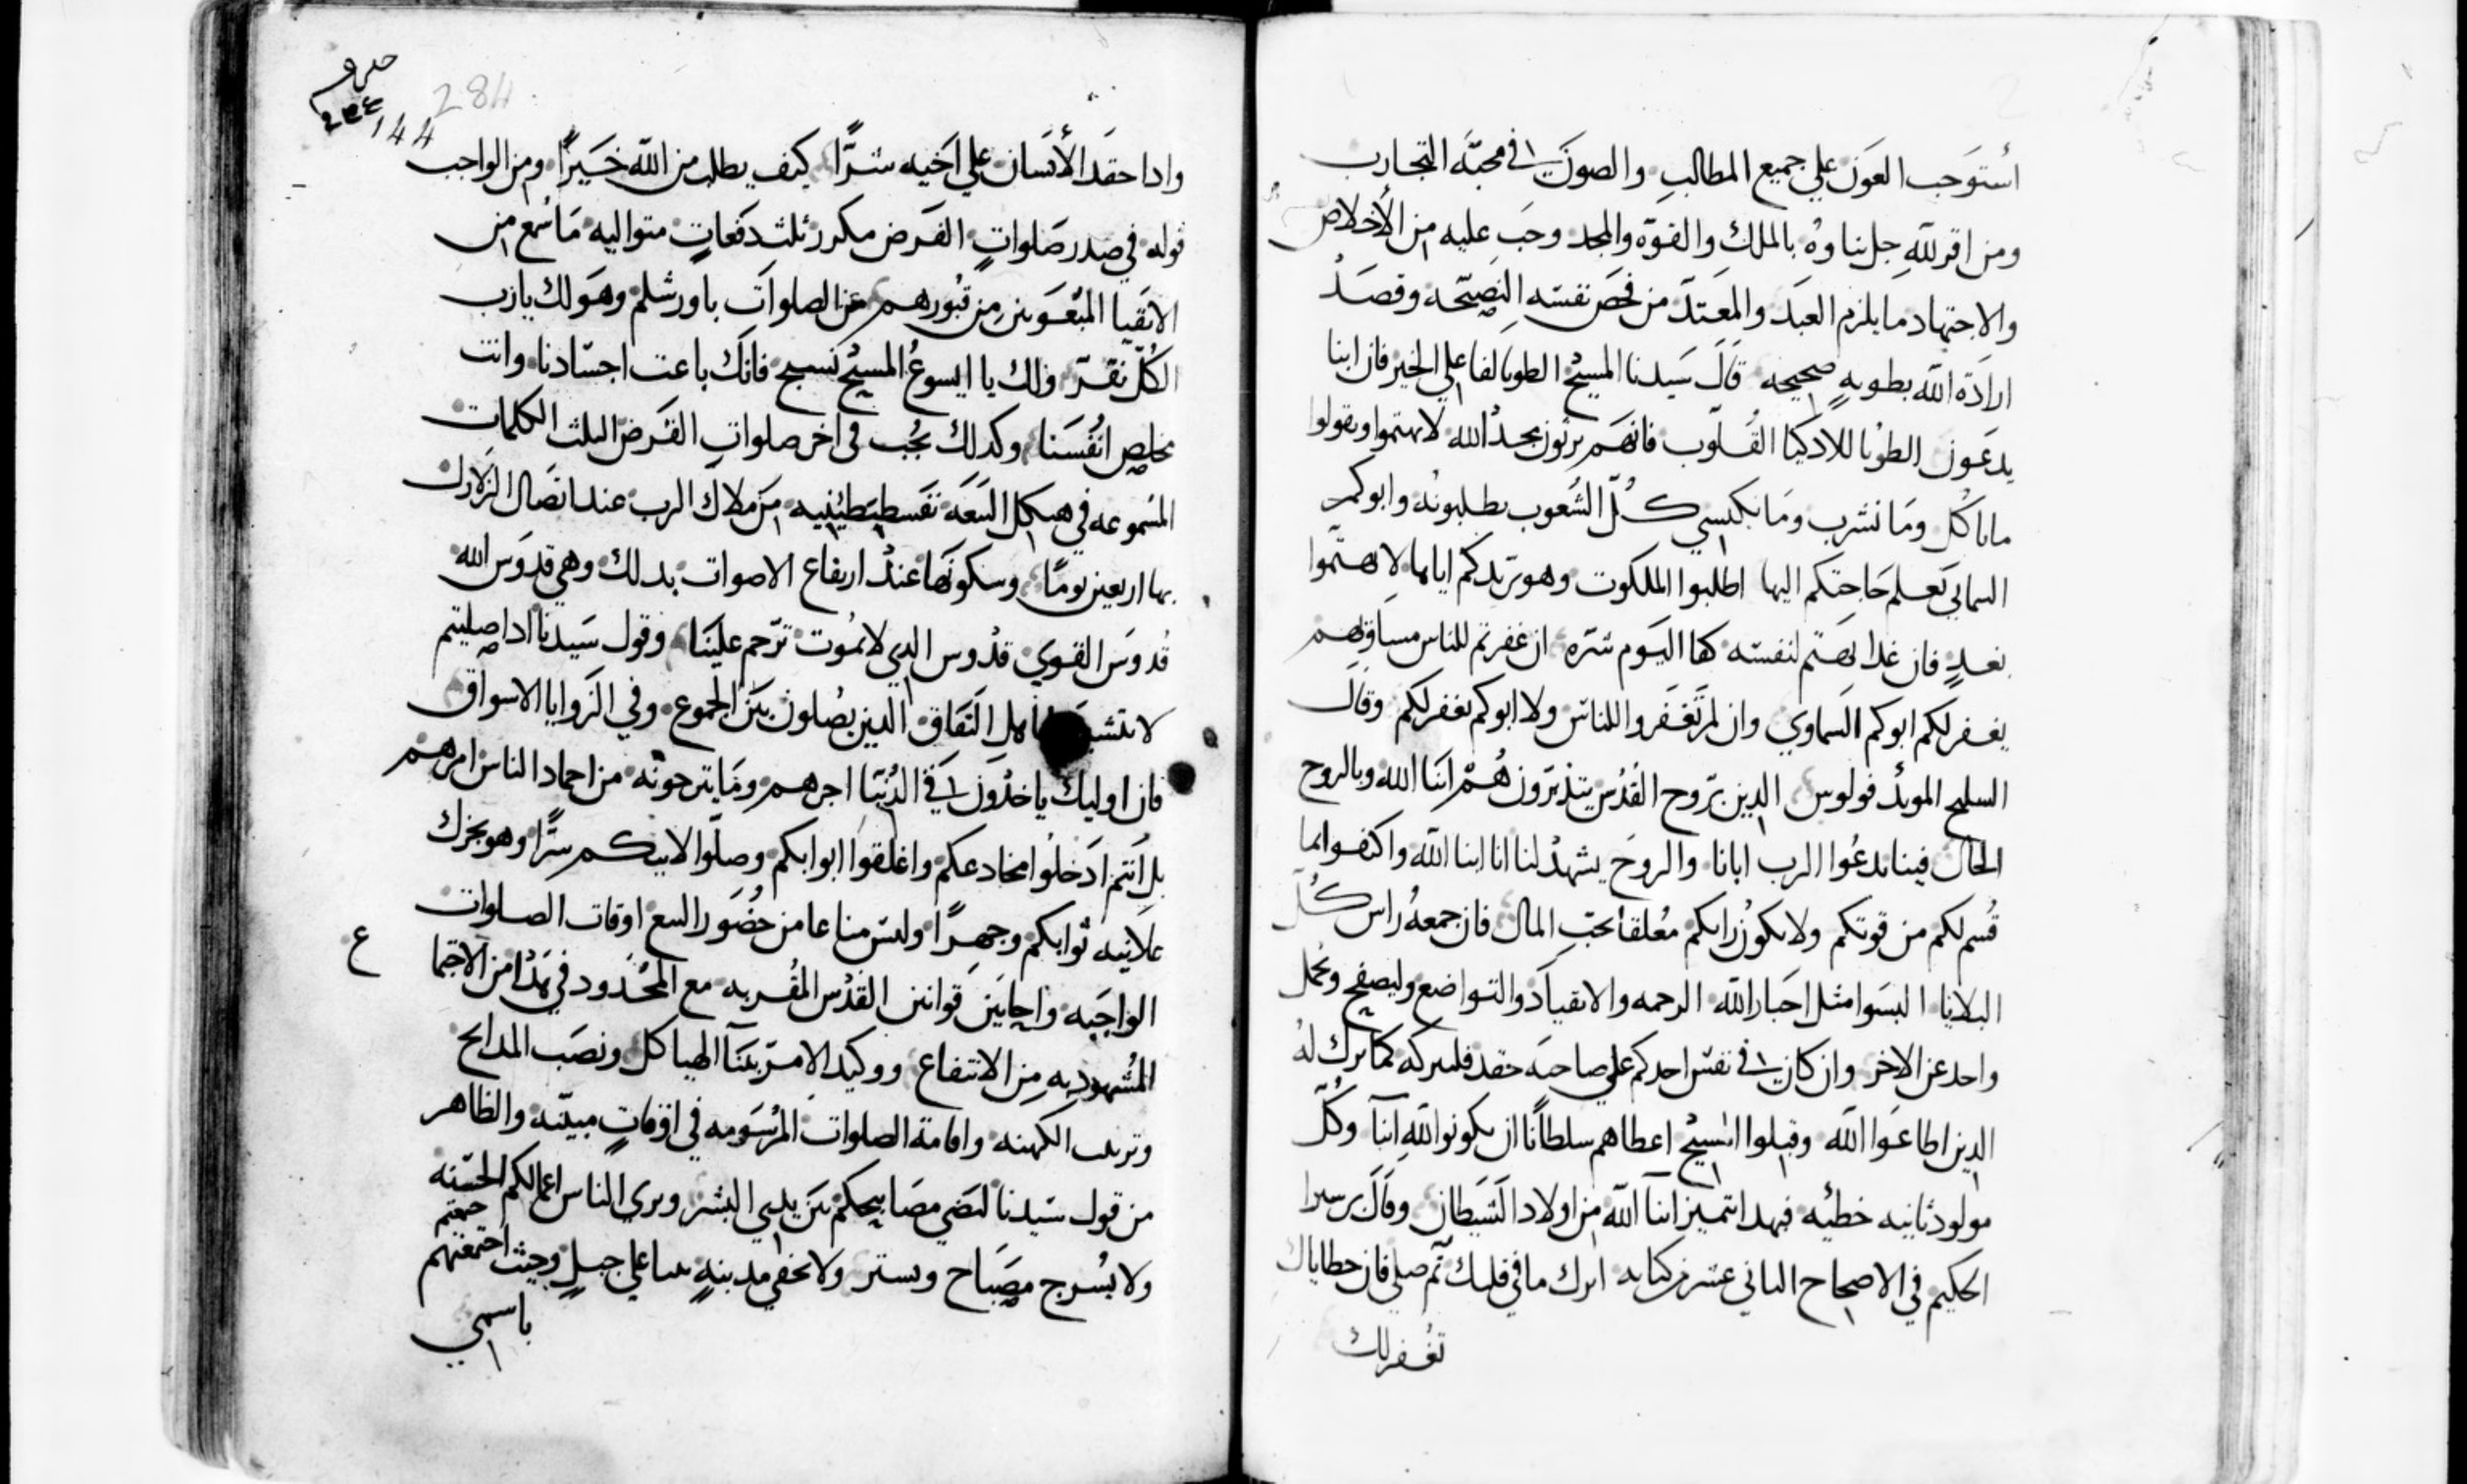 أستوجب العون علي جميع المطالب والصون في محبّه التجارب
ومن اقر لله جل ثناوه بالملك والقوّه والمجد وجب عليه من الأخلاص
والاجتهاد ما يلزم العبد والمعتدّ من فحص نفسه النصيحه وقصد
ارادة الله بطويه صحيحه قال سيدنا المسيح الطوبا لفاعلي الخير فان ابنا
يدعون الطوبا للادكيا القلوب فانهم يرثون مجد الله لا تهتموا وتقولوا
ماناكل وما نشرب وما نكتسي كلّ الشعوب يطلبونه وابوكم
السمايي يعلم حاجتكم اليها اطلبوا الملكوت وهو يزيدكم اياها لا تهتموا
بغدٍ فان غدا يهتم لنفسه كفا اليوم شرّه ان غفرتم للناس مساوٍهم
يغفر لكم ابوكم السماوي وان لم تغفروا للناس ولا ابوكم يغفر لكم وقال
السليح المويد فولوس الدين بروح القدس يتدبّرون هُمّ ابنا الله وبالروح
الحال فينا ندعوا الرب ابانا والروح يشهد لنا انا ابنا الله واكتفوا بما
قُسم لكم من قوتكم ولا يكون رايكم معلقا بحبّ المال فان جمعهُ راس كلّ
البلايا البسوا مثل احبار الله الرحمه والانقياد والتواضع وليصفح وتحمل
واحد عن الاخر وان كان في نفس احدكم علي صاحبه حقد فليتركه كما ترك له
الدين اطاعوا الله وقبلوا المسيح اعطاهم سلطانًا ان يكونوا لله ابنآ وكُلّ
مولود ثانيه خطيه فبهدا تتميز ابنآ الله من اولاد الشيطان وقال برسيرا
الحكيم في الاصحاح الثاني عشر من كتابه اترك ما في قلبك ثم صلي فان خطاياك
تغفر لك
284
144
وادا حقد الأنسان علي اخيه شرًّا كيف يطلب من الله خيرًا ومن الواجب
قوله في صدر صلواتٍ الفرض مكرر ثلث دفعاتٍ متواليه ما سُمع من
الاتقيا المبعوثين من قبورهم عن الصلوات باورشلم وهو لك يارب
الكُلّ نقرّ ولك يا ايسوعُ المسيح نسبح فانك باعت اجسادنا وانت
مخلص انفُسنا وكدلك يُجب في اخر صلوات الفرض الثلث الكلمات
المسموعه في هيكل البيعه نقسطنطينيه من ملاك الرب عند اتصال الزلازل
بها اربعين يومًا وسكونها عند ارتفاع الاصوات بدلك وهي قدوس الله
قدوس القوي قدوس الدي لا يموت ترحم علينا وقول سيدنا ادا صليتم
لا تتشبهوا باهل النفاق الدين يصلون بين الجموع وفي الزوايا الاسواق
فان اوليك ياخدون في الدنيا اجرهم وما يترجونه من احماد الناس امرهم
بل انتم ادخلوا مخادعكم واغلقوا ابوابكم وصلّوا لابيكم سرًّا وهو يجزل
علانيه ثوابكم وجهرًا وليس مناعا من حضور البيع اوقات الصلوات
الواجبه واحايين قوانين القدس المقربه مع المحدود في هدا من الاجتما
ع
المُشهود به من الانتفاع ووكيد الامر ببنآ الهياكل ونصب المدابح
وترتيب الكهنه واقامة الصلوات المرسومه في اوقاتٍ مبيّنه والظاهر
من قول سيدنا لتضي مصابيحكم بين يدي البشر ويري الناس اعمالكم الحسنه
ولا يُسرج مصباح ويستر ولا تخفي مدينهٍ بنيا علي جبلٍ وحيث اجتمعتم
باسمي